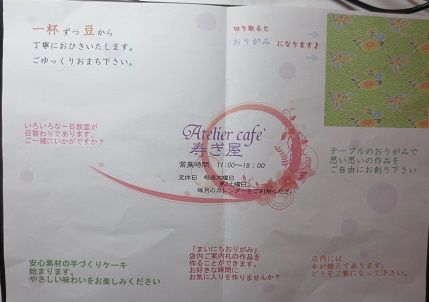 一杯ずつ豆から
丁寧におひきいたします。
ごゆっくりおまち下さい。
切り取ると
おりがみになります♪
いろいろな一日教室が
日替わりであります。
ご一緒にいかがですか?
Atelier cafe'
寿ぎ屋
営業時間 11:00~18:00
定休日 毎週木曜日
第 土曜日
毎月のカレンダーをご利用ください
テーブルのおりがみで
思い思いの作品を
ご自由にお創り下さい
安心素材の手づくりケーキ
始まります。
やさしい味わいをお楽しみください
「まいにちおりがみ」
店内ご案内札の作品を
作ることができます。
お好きな時間に
お気に入りを作りませんか?
店内には
本が備えてあります。
どうぞご覧になって下さい。